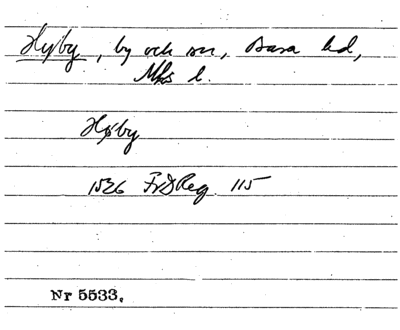 Hyby, by och sn, Bara hd,
Mhs l.
Høby
1526 FrDReg 115
Nr 5533.